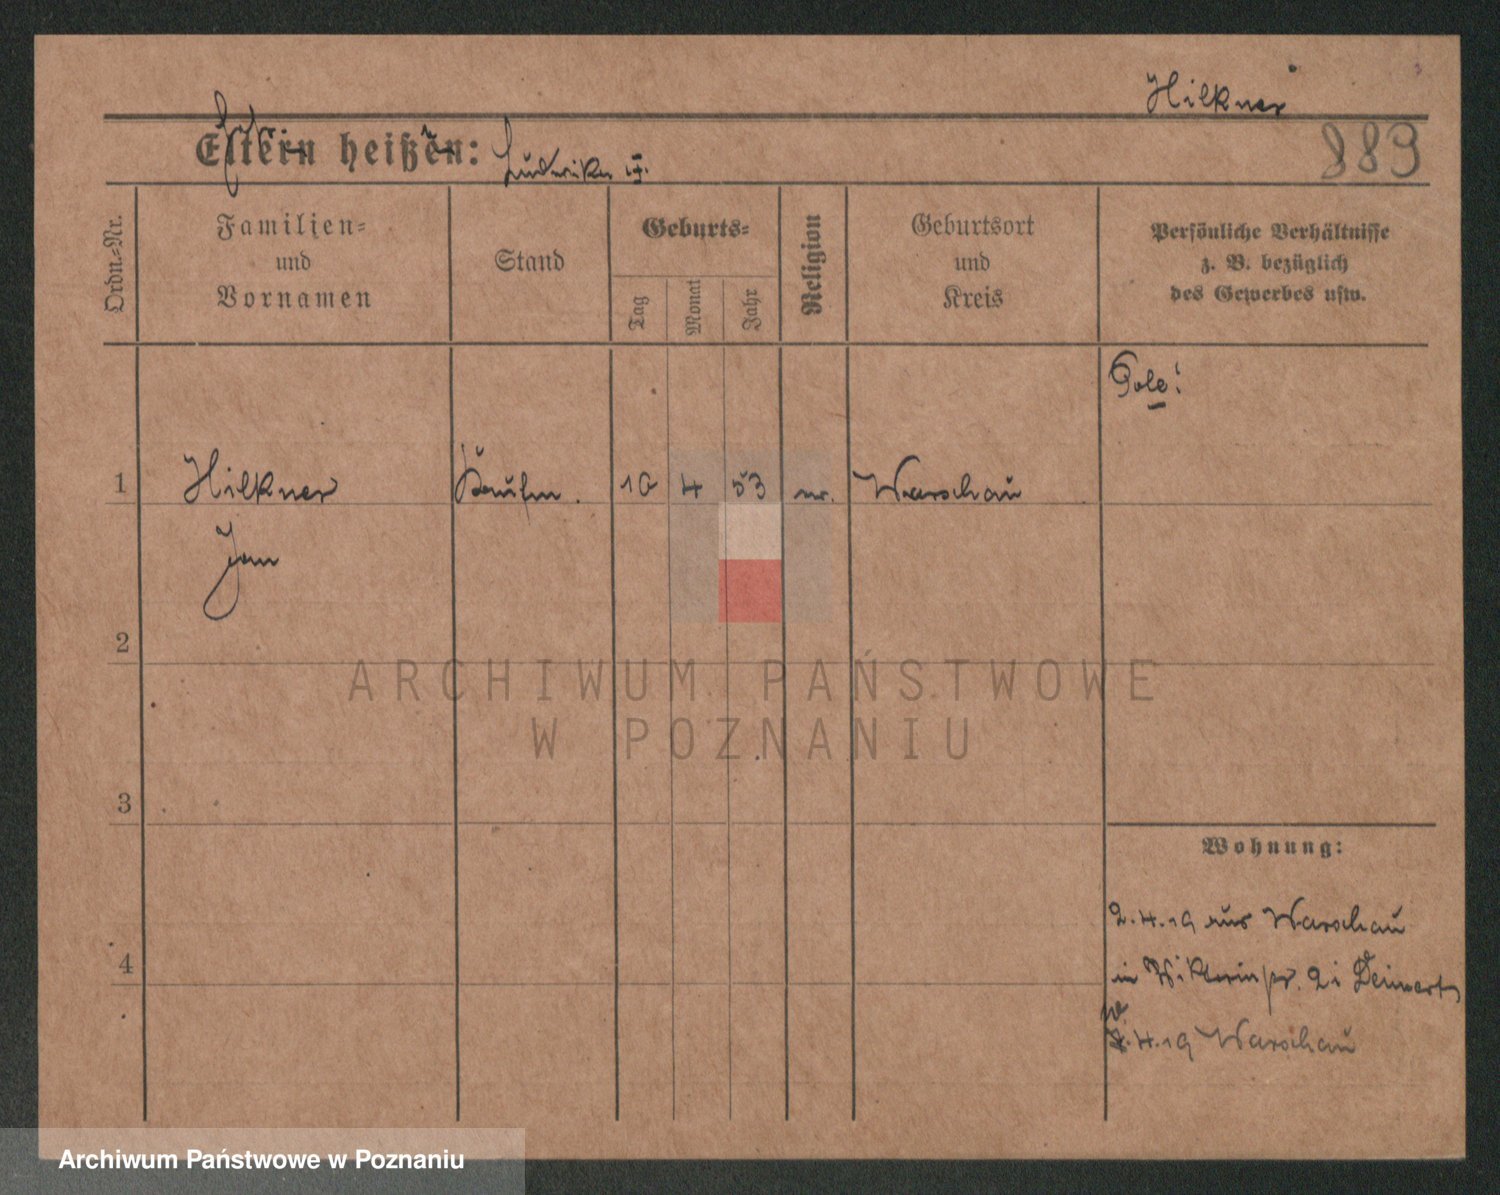 Hilkner
889
Eltern heißen:
Ordn.-Nr.
Familien-
und
Vornamen
Stand
Geburts-
Tag
Monat
Jahr
Religion
Geburtsort
und
Kreis
Persönliche Verhältnisse
z. B. bezüglich
des Gewerbes usw.
Pole!
1
Hilkner
Kaufm.
4
53
Warschau
Jan
2
ARCHIWUM PAŃSTWOWE
W POZNANIU
3
Wohnung:
2.4.19 aus Warschau
4
in
4.19 Warschau
Archiwum Państwowe w Poznaniu